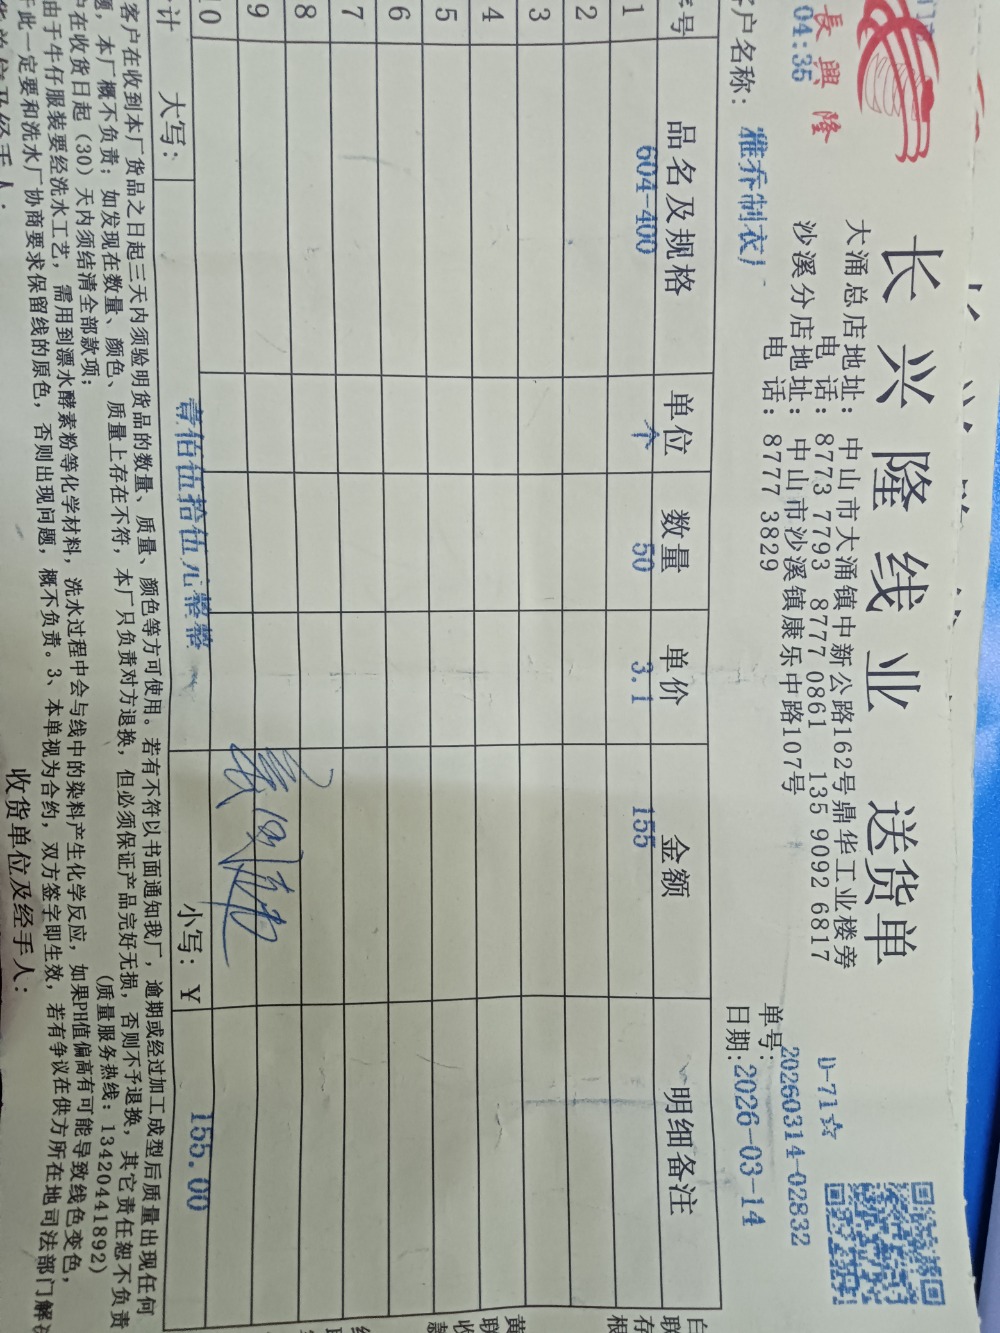 長興隆
04:35
长兴隆线业 送货单
D-71☆
大涌总店地址：中山市大涌镇中新公路162号鼎华工业楼旁
电 话：8773 7793 8777 0861 135 9092 6817
沙溪分店地址：中山市沙溪镇康乐中路107号
电 话：8777 3829
单号：20260314-02832
户名称：雅乔制衣厂
日期：2026-03-14
号 品名及规格 单位 数量 单价 金额 明细备注
1 604-400 个 50 3.1 155
2
3
4
5
6
7
8
9
10
计 大写：壹佰伍拾伍元整整 小写：￥ 155.00
客户在收到本厂货品之日起三天内须验明货品的数量、质量、颜色等方可使用。若有不符以书面通知我厂，逾期或经过加工成型后质量出现任何
题，本厂概不负责；如发现在数量、颜色、质量上存在不符，本厂只负责对方退换，但必须保证产品完好无损，否则不予退换，其它责任恕不负责
户在收货日起（30）天内须结清全部款项； （质量服务热线：13420441892）
由于牛仔服装要经洗水工艺，需用到漂水酵素粉等化学材料，洗水过程中会与线中的染料产生化学反应，如果PH值偏高有可能导致线色变色，
此一定要和洗水厂协商要求保留线的原色，否则出现问题，概不负责。3、本单视为合约，双方签字即生效，若有争议在供方所在地司法部门解决
货单位及经手人： 收货单位及经手人：